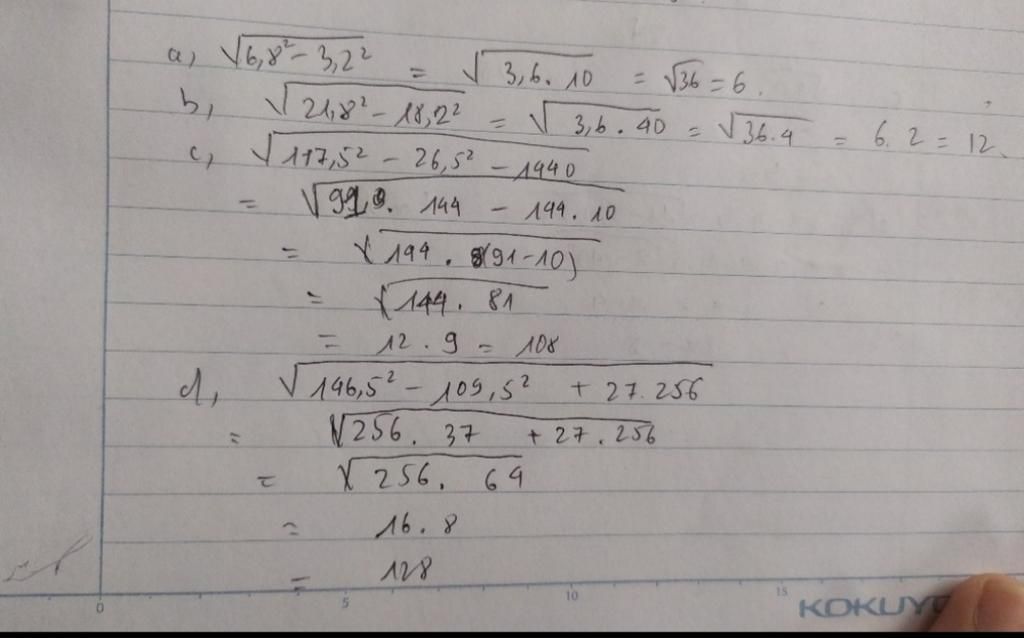 a, √6,8² - 3,2² = √3,6.10 = √36 = 6.
b, √21,8² - 18,2² = √3,6.40 = √36.4 = 6.2 = 12
c, √117,5² - 26,5² - 1440
= √91. 144 - 144.10
= √144. (91-10)
= √144. 81
= 12.9 = 108
d, √146,5² - 109,5² + 27.256
= √256. 37 + 27.256
= √256. 64
= 16.8
= 128
0 5 10 15
KOKUYO